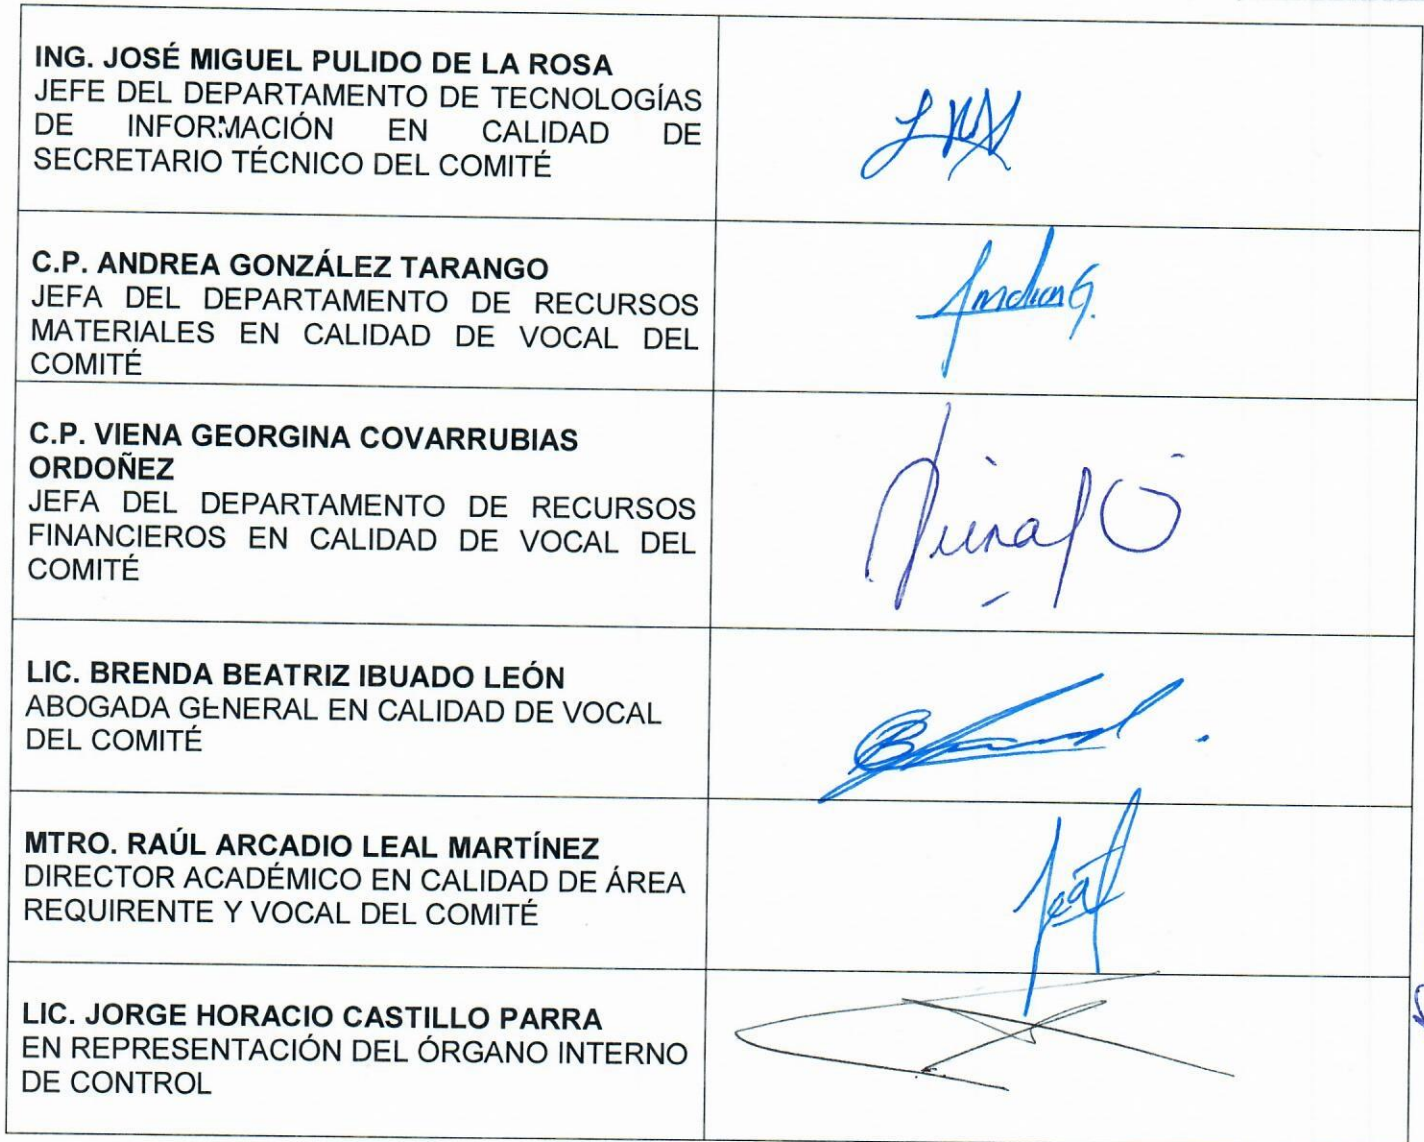 ING. JOSÉ MIGUEL PULIDO DE LA ROSA
JEFE DEL DEPARTAMENTO DE TECNOLOGÍAS
DE INFORMACIÓN EN CALIDAD DE
SECRETARIO TÉCNICO DEL COMITÉ
C.P. ANDREA GONZÁLEZ TARANGO
JEFA DEL DEPARTAMENTO DE RECURSOS
MATERIALES EN CALIDAD DE VOCAL DEL
COMITÉ
C.P. VIENA GEORGINA COVARRUBIAS
ORDOÑEZ
JEFA DEL DEPARTAMENTO DE RECURSOS
FINANCIEROS EN CALIDAD DE VOCAL DEL
COMITÉ
LIC. BRENDA BEATRIZ IBUADO LEÓN
ABOGADA GENERAL EN CALIDAD DE VOCAL
DEL COMITÉ
MTRO. RAÚL ARCADIO LEAL MARTÍNEZ
DIRECTOR ACADÉMICO EN CALIDAD DE ÁREA
REQUIRENTE Y VOCAL DEL COMITÉ
LIC. JORGE HORACIO CASTILLO PARRA
EN REPRESENTACIÓN DEL ÓRGANO INTERNO
DE CONTROL